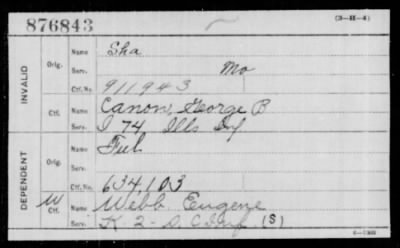 876843 (3-H-4)
INVALID
Orig.
Name Sha
Serv. Mo
Ctf. No. 911943
Ctf.
Name Canon, George B
Serv. I 74 Ills Inf
DEPENDENT
Orig.
Name
Serv.
Ctf. No. 634,103
W Ctf.
Name Webb Eugene
Serv. K 2 - D.C. Inf. (S)